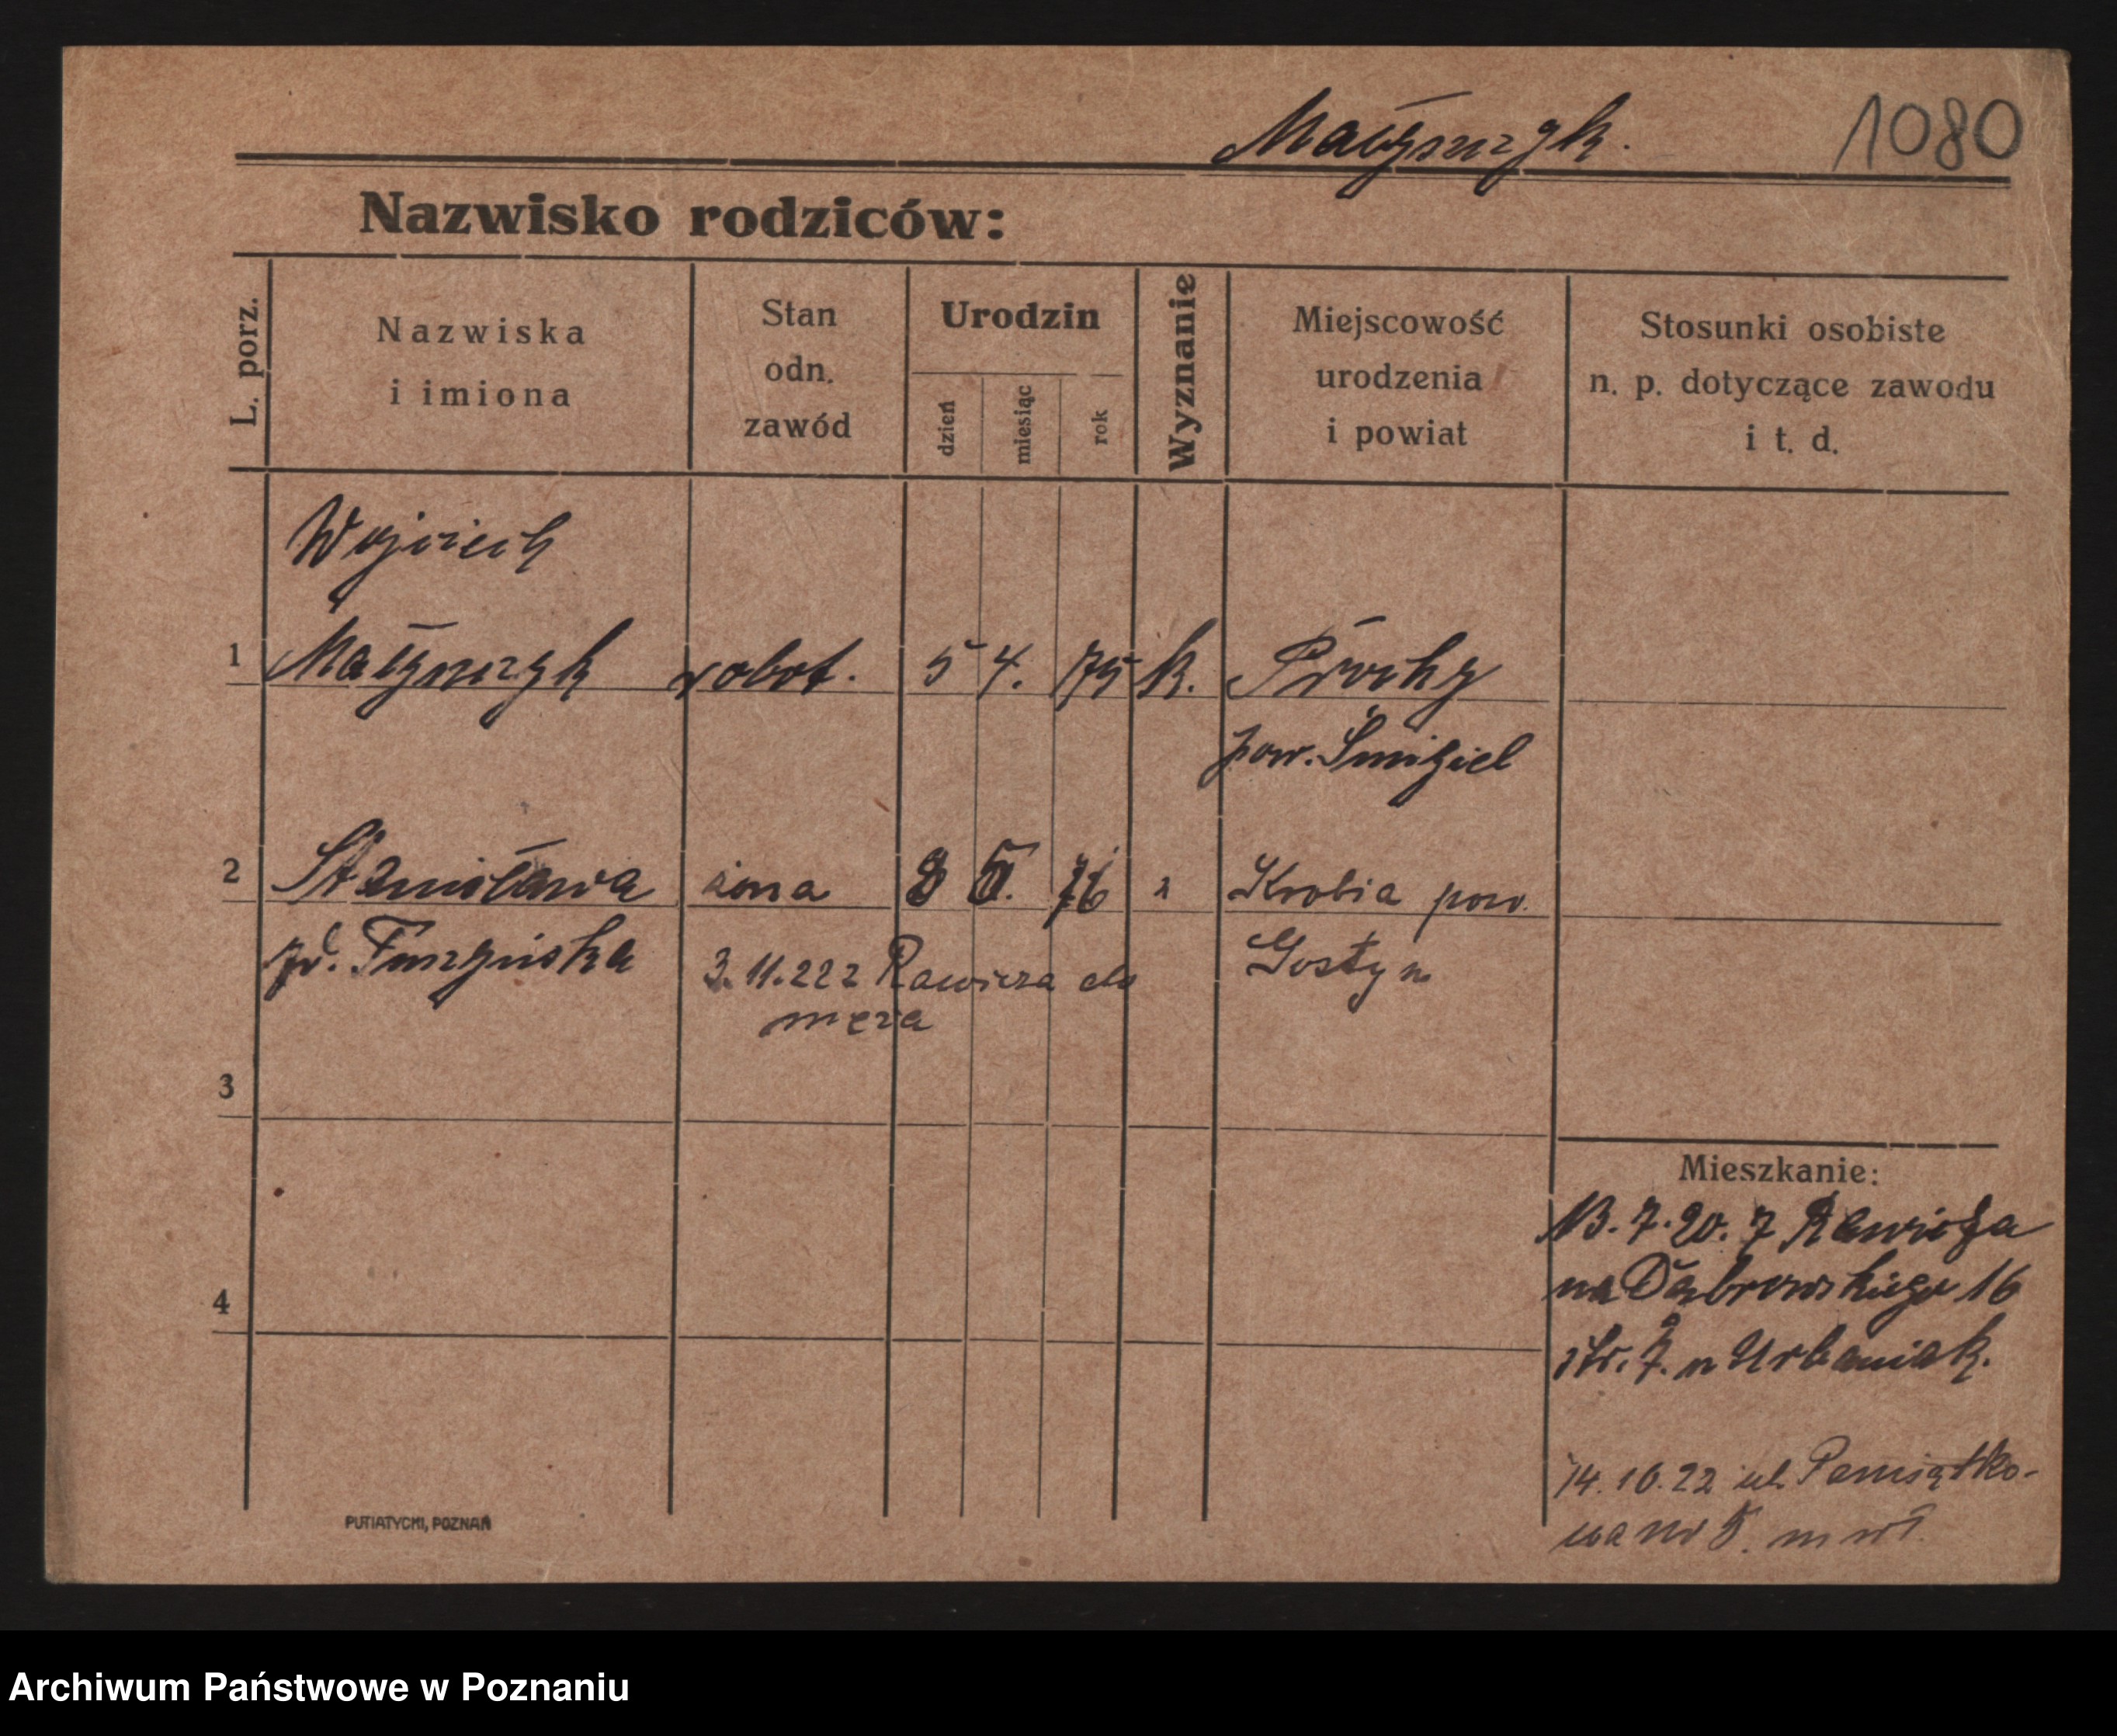 Małyszczyk.
1080
Nazwisko rodziców:
L. porz.
Nazwiska
i imiona
Stan
odn.
zawód
Urodzin
dzień
miesiąc
rok
Wyznanie
Miejscowość
urodzenia
i powiat
Stosunki osobiste
n. p. dotyczące zawodu
i t. d.
Wojciech
1 robot. 5 4. 75 k.
pow. Śmigiel
2 Stanisława żona 8 76 Krobia pow.
3.11.22 z Rawicza do
męża
Gostyn
3
Mieszkanie:
13.7.20. z Rawicza
na Dąbrowskiego 16
Urbaniak.
4
14.10.22 ul. Pamiątko-
wa nr 5.
PUTIATYCKI, POZNAŃ
Archiwum Państwowe w Poznaniu